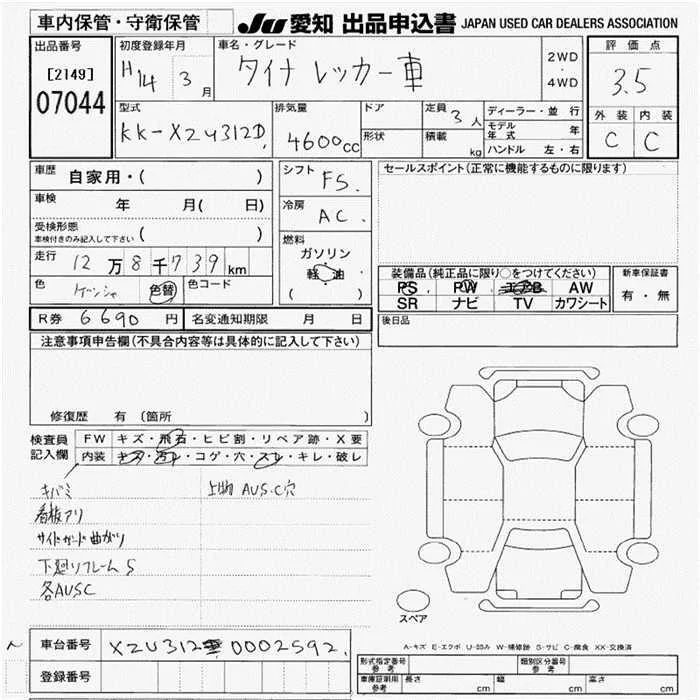 車内保管・守衛保管
JU 愛知 出品申込書 JAPAN USED CAR DEALERS ASSOCIATION
出品番号
[2149]
07044
初度登録年月
H14 3月
車名・グレード
ダイナ レッカー車
2WD
・
4WD
評価点
3.5
外装 内装
C C
型式
KK-XZU312D
排気量
4600cc
ドア
形状
定員 3人
積載 kg
ディーラー・並行
モデル年式 年
ハンドル 左・右
車歴
自家用・( )
車検 年 月( 日)
受検形態
車検付きのみ記入して下さい ( )
走行 12万8千739km
色 色替 色コード
R券 6690円 名変通知期限 月 日
シフト
F5.
冷房
AC.
燃料
ガソリン
軽・油
( )
セールスポイント(正常に機能するものに限ります)
装備品(純正品に限り○をつけてください)
PS PW エアB AW
SR ナビ TV カワシート
新車保証書
有・無
後日品
注意事項申告欄(不具合内容等は具体的に記入して下さい)
修復歴 有(箇所 )
検査員記入欄
FW キズ・飛石・ヒビ割・リペア跡・X要
内装 キズ・汚レ・コゲ・穴・スレ・キレ・破レ
キバミ
看板アリ
サイドガード曲がり
下廻りフレームS
各AUSC
上物 AUS・C穴
スペア
A-キズ E-エクボ U-凹み W-補修跡 S-サビ C-腐食 XX-交換済
車台番号 XZU312 0002592
登録番号
形式指定番号
参考
類別区分番号
参考
車庫証明用
参考
長さ cm 幅 cm 高さ cm